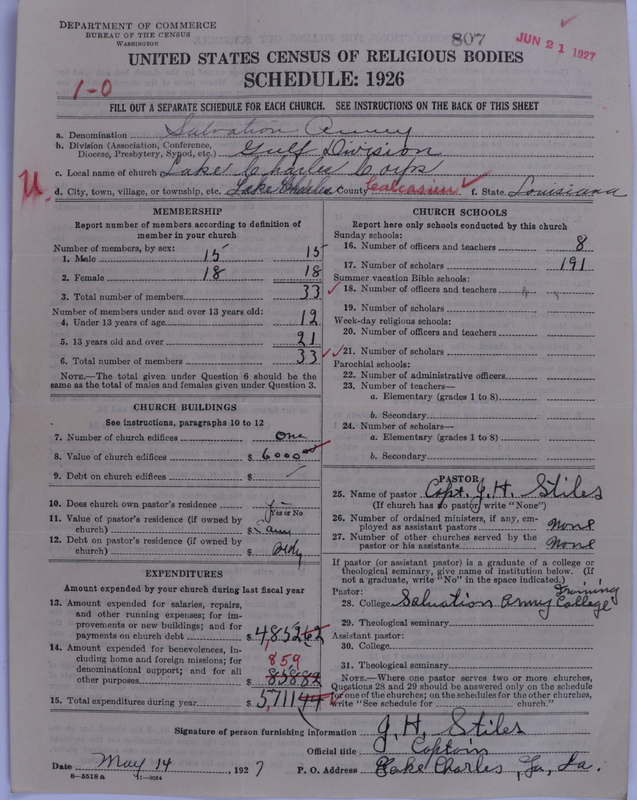 DEPARTMENT OF COMMERCE
BUREAU OF THE CENSUS
WASHINGTON
807
JUN 21 1927
UNITED STATES CENSUS OF RELIGIOUS BODIES
SCHEDULE: 1926
1-0
FILL OUT A SEPARATE SCHEDULE FOR EACH CHURCH. SEE INSTRUCTIONS ON THE BACK OF THIS SHEET
a. Denomination Salvation Army
b. Division (Association, Conference, Diocese, Presbytery, Synod, etc.) Gulf Division
c. Local name of church Lake Charles Corps
d. City, town, village, or township, etc. Lake Charles County Calcasieu f. State Louisiana
MEMBERSHIP
Report number of members according to definition of
member in your church
Number of members, by sex:
1. Male 15 15
2. Female 18 18
3. Total number of members 33
Number of members under and over 13 years old:
4. Under 13 years of age 12
5. 13 years old and over 21
6. Total number of members 33
NOTE.—The total given under Question 6 should be
same as the total of males and females given under Question 3.
CHURCH BUILDINGS
See instructions, paragraphs 10 to 12
7. Number of church edifices one
8. Value of church edifices $ 6000 00
9. Debt on church edifices $
10. Does church own pastor's residence
Yes or No
11. Value of pastor's residence (if owned by
church) $
12. Debt on pastor's residence (if owned by
church) $
EXPENDITURES
Amount expended by your church during last fiscal year
13. Amount expended for salaries, repairs,
and other running expenses; for im-
provements or new buildings; and for
payments on church debt $ 4,852 62
14. Amount expended for benevolences, in-
cluding home and foreign missions; for
denominational support; and for all
other purposes $ 858 82
859
15. Total expenditures during year $ 5,711 44
CHURCH SCHOOLS
Report here only schools conducted by this church
Sunday schools:
16. Number of officers and teachers 8
17. Number of scholars 191
Summer vacation Bible schools:
18. Number of officers and teachers
19. Number of scholars
Week-day religious schools:
20. Number of officers and teachers
21. Number of scholars
Parochial schools:
22. Number of administrative officers
23. Number of teachers—
a. Elementary (grades 1 to 8)
b. Secondary
24. Number of scholars—
a. Elementary (grades 1 to 8)
b. Secondary
PASTOR
25. Name of pastor Capt. J. H. Stiles
(If church has no pastor, write "None")
26. Number of ordained ministers, if any, em-
ployed as assistant pastors None
27. Number of other churches served by the
pastor or his assistants None
If pastor (or assistant pastor) is a graduate of a college or
theological seminary, give name of institution below. (If
not a graduate, write "No" in the space indicated.)
Pastor:
28. College Salvation Army Training College
29. Theological seminary
Assistant pastor:
30. College
31. Theological seminary
NOTE.—Where one pastor serves two or more churches,
Questions 28 and 29 should be answered only on the schedule
for one of the churches; on the schedules for the other churches,
write "See schedule for church."
Signature of person furnishing information J. H. Stiles
Official title Captain
Date May 14, 1927 P. O. Address Lake Charles, La.
8-5518a 11-9264